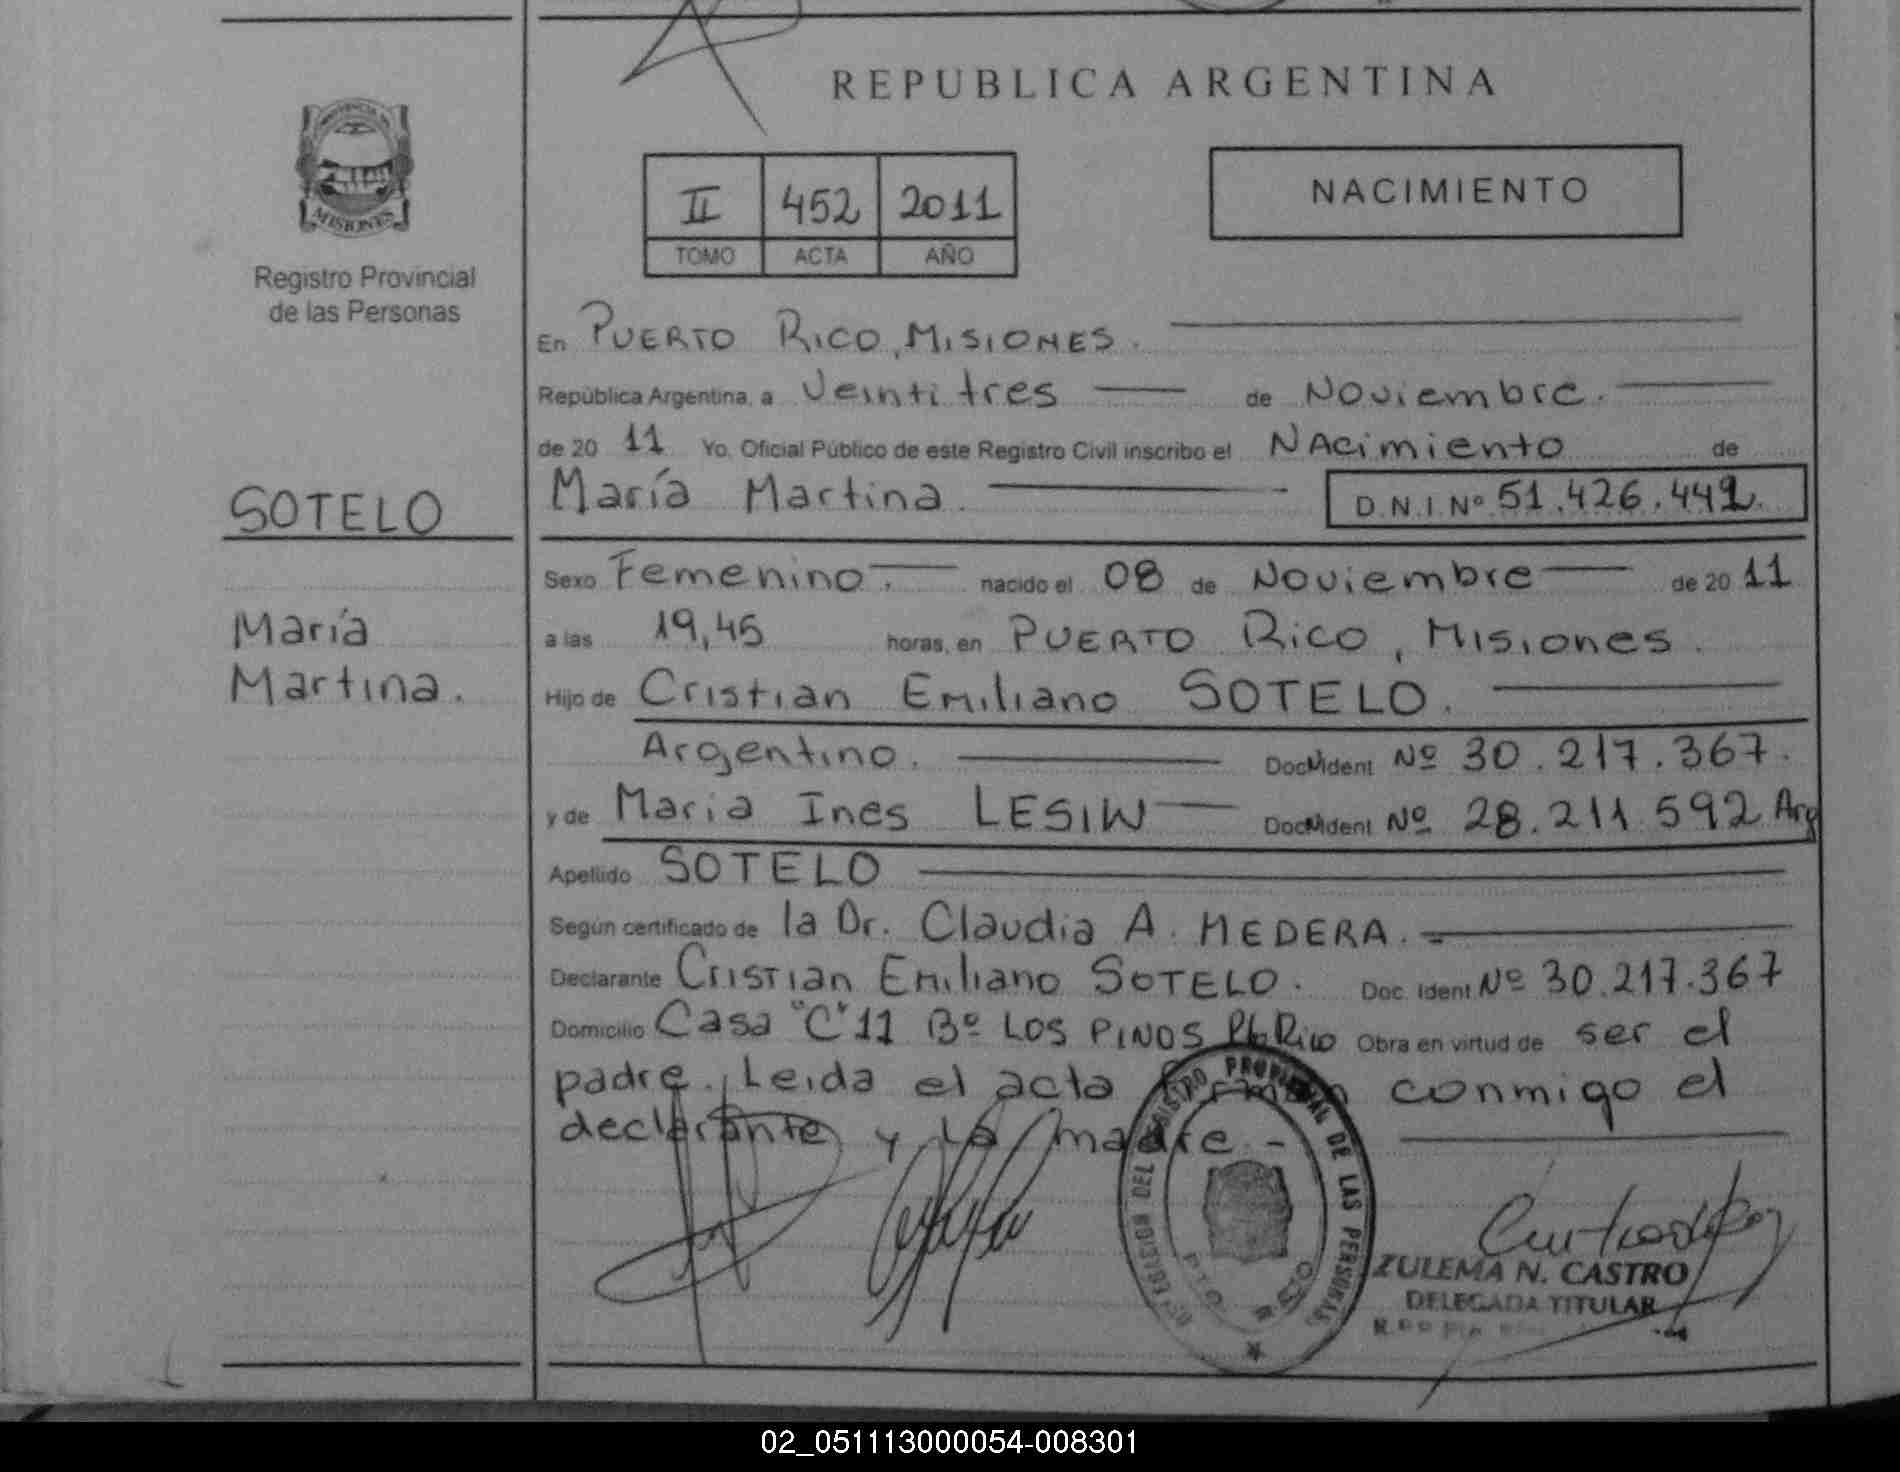 REPUBLICA ARGENTINA
PROVINCIA DE
MISIONES
Registro Provincial
de las Personas
II 452 2011
TOMO ACTA AÑO
NACIMIENTO
En PUERTO RICO, MISIONES.
República Argentina, a Veintitres de Noviembre.
de 20 11 Yo, Oficial Público de este Registro Civil inscribo el NAcimiento de
SOTELO
María Martina. D.N.I. Nº 51.426.442.
Sexo Femenino. nacido el 08 de Noviembre de 20 11
María
a las 19,45 horas, en PUERTO RICO, Misiones.
Martina.
Hijo de Cristian Emiliano SOTELO.
Argentino. Doc. Ident Nº 30.217.367.
y de Maria Ines LESIW Doc. Ident Nº 28.211.592 Arg
Apellido SOTELO
Según certificado de la Dr. Claudia A. MEDERA.
Declarante Cristian Emiliano SOTELO. Doc. Ident Nº 30.217.367
Domicilio Casa "C" 11 Bº LOS PINOS Pto Rico Obra en virtud de ser el
padre. Leida el acta firman conmigo el
declarante y la madre.-
DEL REGISTRO PROVINCIAL DE LAS PERSONAS
PTO RICO
ZULEMA N. CASTRO
DELEGADA TITULAR
02_051113000054-008301